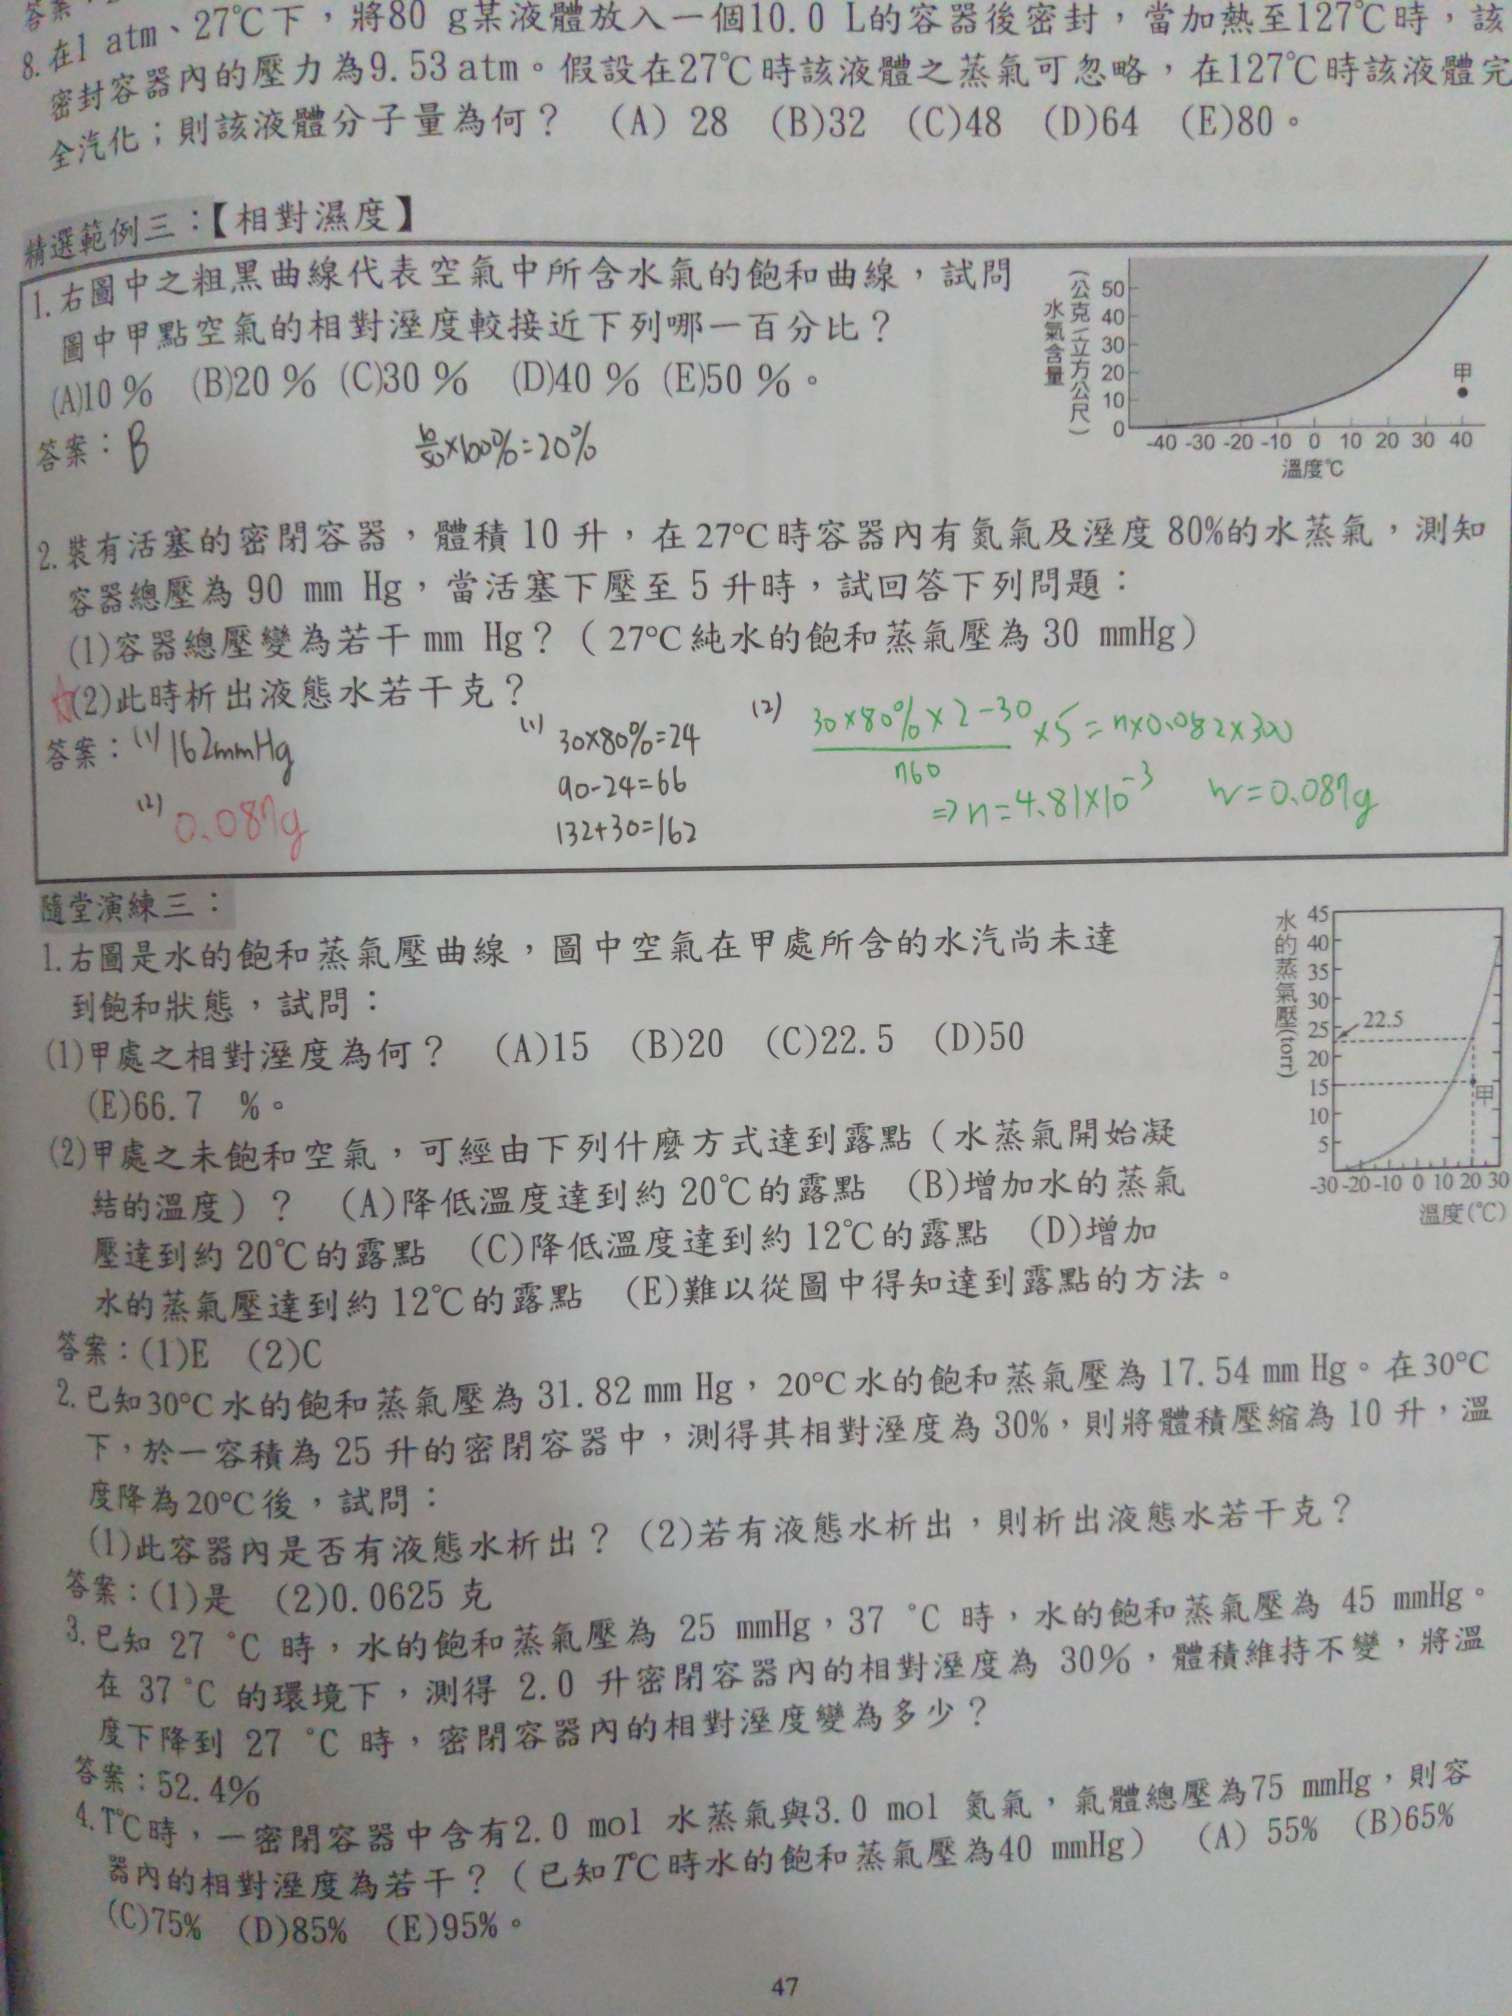 答案：
8.在1 atm、27℃下，將80 g某液體放入一個10.0 L的容器後密封，當加熱至127℃時，該
密封容器內的壓力為9.53 atm。假設在27℃時該液體之蒸氣可忽略，在127℃時該液體完
全汽化；則該液體分子量為何？ (A) 28 (B)32 (C)48 (D)64 (E)80。
精選範例三：【相對濕度】
1.右圖中之粗黑曲線代表空氣中所含水氣的飽和曲線，試問
圖中甲點空氣的相對溼度較接近下列哪一百分比？
(A)10 % (B)20 % (C)30 % (D)40 % (E)50 %。
答案：B
10/50×100%=20%
水氣含量
(公克/立方公尺)
50
40
30
20
10
0
甲
-40 -30 -20 -10 0 10 20 30 40
溫度℃
2.裝有活塞的密閉容器，體積 10 升，在 27°C 時容器內有氮氣及溼度 80%的水蒸氣，測知
容器總壓為 90 mm Hg，當活塞下壓至 5 升時，試回答下列問題：
(1)容器總壓變為若干 mm Hg？（27°C 純水的飽和蒸氣壓為 30 mmHg）
☆(2)此時析出液態水若干克？
答案：(1) 162mmHg
(2) 0.087g
(1) 30×80%=24
90-24=66
132+30=162
(2) 30×80%×2-30/760 ×5=n×0.082×300
⇒n=4.81×10⁻³ w=0.087g
隨堂演練三：
1.右圖是水的飽和蒸氣壓曲線，圖中空氣在甲處所含的水汽尚未達
到飽和狀態，試問：
(1)甲處之相對溼度為何？ (A)15 (B)20 (C)22.5 (D)50
(E)66.7 %。
(2)甲處之未飽和空氣，可經由下列什麼方式達到露點（水蒸氣開始凝
結的溫度）？ (A)降低溫度達到約 20℃的露點 (B)增加水的蒸氣
壓達到約 20℃的露點 (C)降低溫度達到約 12℃的露點 (D)增加
水的蒸氣壓達到約 12℃的露點 (E)難以從圖中得知達到露點的方法。
答案：(1)E (2)C
水的蒸氣壓(torr)
45
40
35
30
25
20
15
10
5
22.5
甲
-30 -20 -10 0 10 20 30
溫度(℃)
2.已知30°C水的飽和蒸氣壓為 31.82 mm Hg，20°C水的飽和蒸氣壓為 17.54 mm Hg。在30°C
下，於一容積為 25 升的密閉容器中，測得其相對溼度為 30%，則將體積壓縮為 10 升，溫
度降為20°C後，試問：
(1)此容器內是否有液態水析出？ (2)若有液態水析出，則析出液態水若干克？
答案：(1)是 (2)0.0625 克
3.已知 27 °C 時，水的飽和蒸氣壓為 25 mmHg，37 °C 時，水的飽和蒸氣壓為 45 mmHg。
在 37 °C 的環境下，測得 2.0 升密閉容器內的相對溼度為 30%，體積維持不變，將溫
度下降到 27 °C 時，密閉容器內的相對溼度變為多少？
答案：52.4%
4.T℃時，一密閉容器中含有2.0 mol 水蒸氣與3.0 mol 氮氣，氣體總壓為75 mmHg，則容
器內的相對溼度為若干？（已知T℃時水的飽和蒸氣壓為40 mmHg） (A) 55% (B)65%
(C)75% (D)85% (E)95%。
47